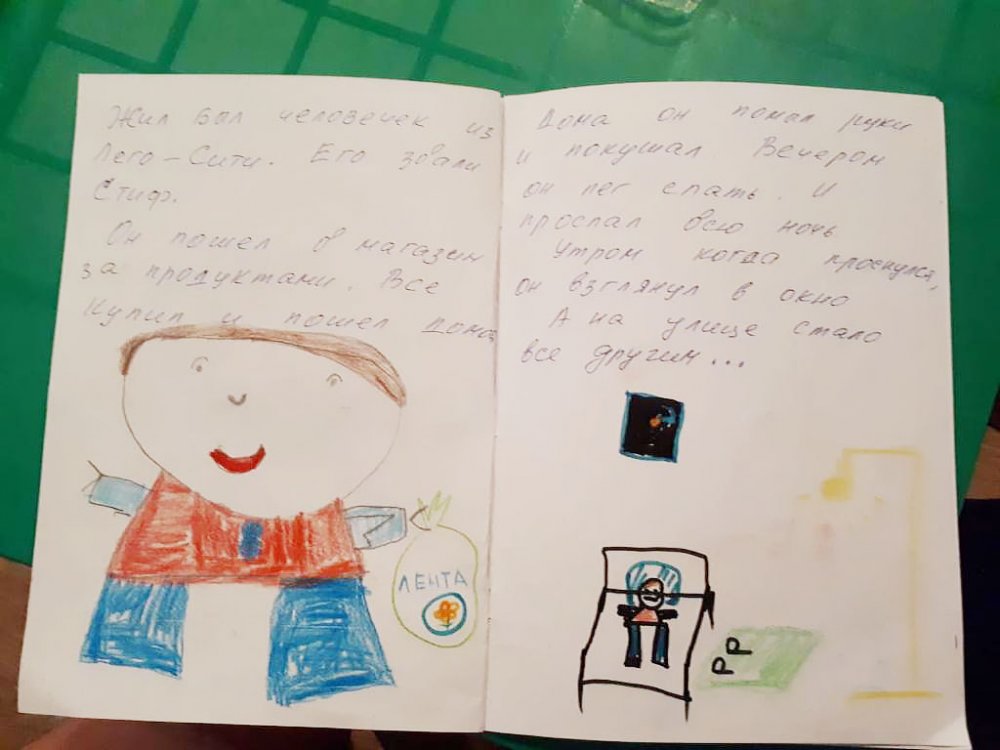 Жил был человечек из
Лего-Сити. Его звали
Стиф.
Он пошел в магазин
за продуктами. Все
Купил и пошел домо
ЛЕНТА
Дома он помол руки
и покушал. Вечером
он лег спать. И
проспал всю ночь
Утром когда проснулся,
он взглянул в окно
А на улице стало
все другим...
РР